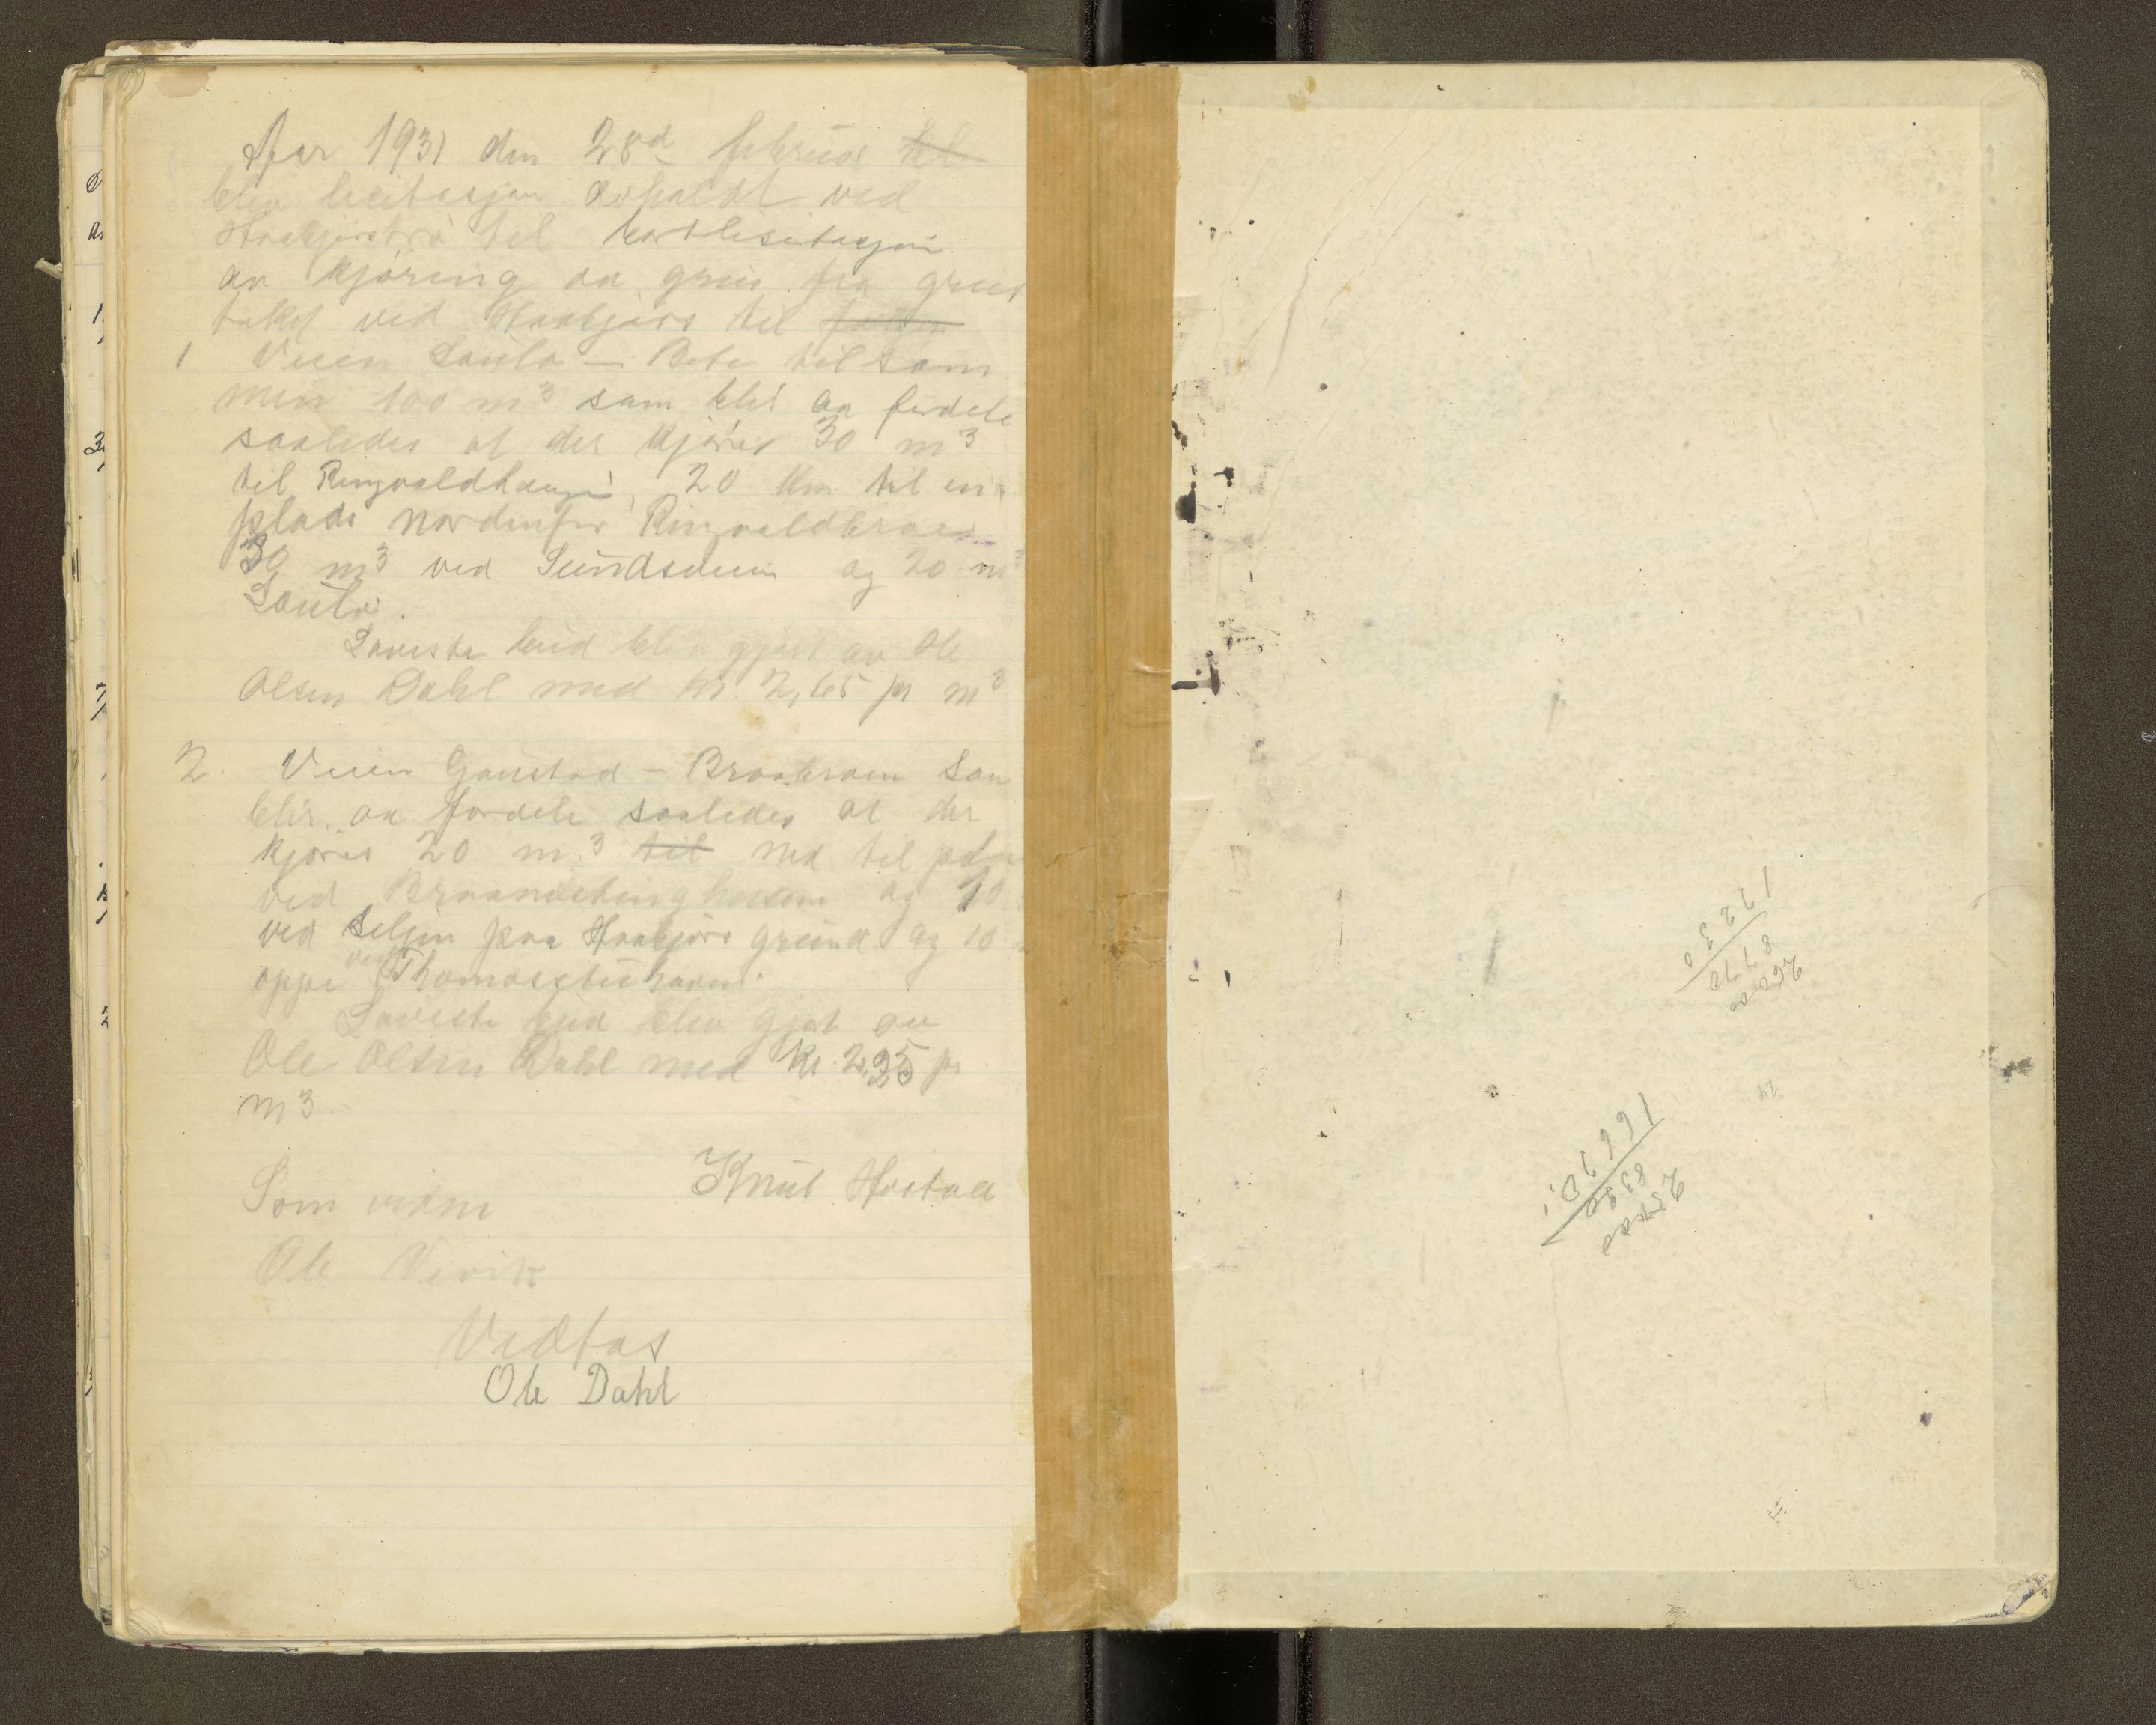 Aar 1931 den 28d februa til
blev licitasjon avhaldt ved
Haakjørsbrø til bortlisitasjon
av kjøring av grus fra grus
taket ved Haakjørs til
1 Veien Saulø - Bete til sam
men 100 m3 som blir aa fordele
saaledes at der kjøres 30 m3
til Ringvaldhaugen, 20 km til en
plads nordenfor Ringvaldbraa
30 m3 ved Sundsveien og 20 m3
Saulø.
Laveste bud blev gjort av Ole
Olsen Dahl med kr. 2,65 pr m3
2. Veien Gaustad - Braabraen som
blir aa fordele saaledes at der
kjøres 20 m3 til ned til
ved og 10
ved Seljen paa Haakjørs grund og 10
oppe ved
Laveste bud blev gjort av
Ole Olsen Dahl med kr. 2,35 pr
m3
Knut Hostad
Som vidne
Ole Vevik
Vedtas
Ole Dahl
26000
8770
17230
24
25000
8380
16620